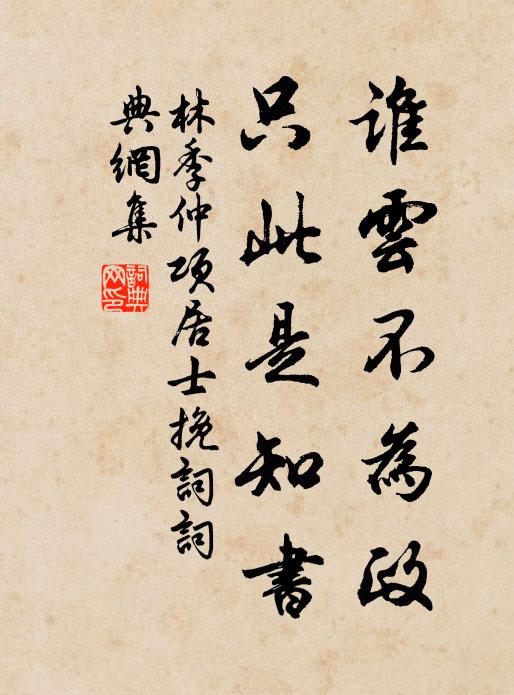 誰雲不為政
只此是知書
林季仲項居士挽詞詞
典網集
詞典網印